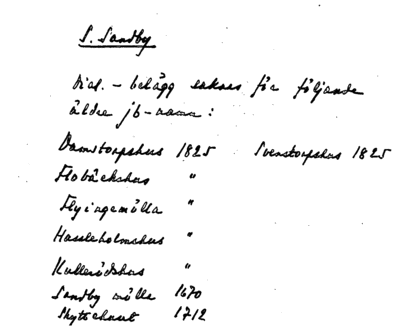 S. Sandby
Dial.-belägg saknas för följande
äldre jb-namn:
Damstorpshus 1825 Svenstorpshus 1825
Flobäckshus "
Flyingemölla "
Hassleholmshus "
Kullerödshus "
Sandby mölla 1670
Skyttehuset 1712